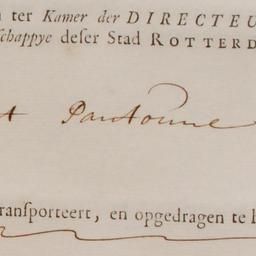 ter Kamer der DIRECTEU
schappye deser Stad ROTTERD
t Pantoune
ransporteert, en opgedragen te h